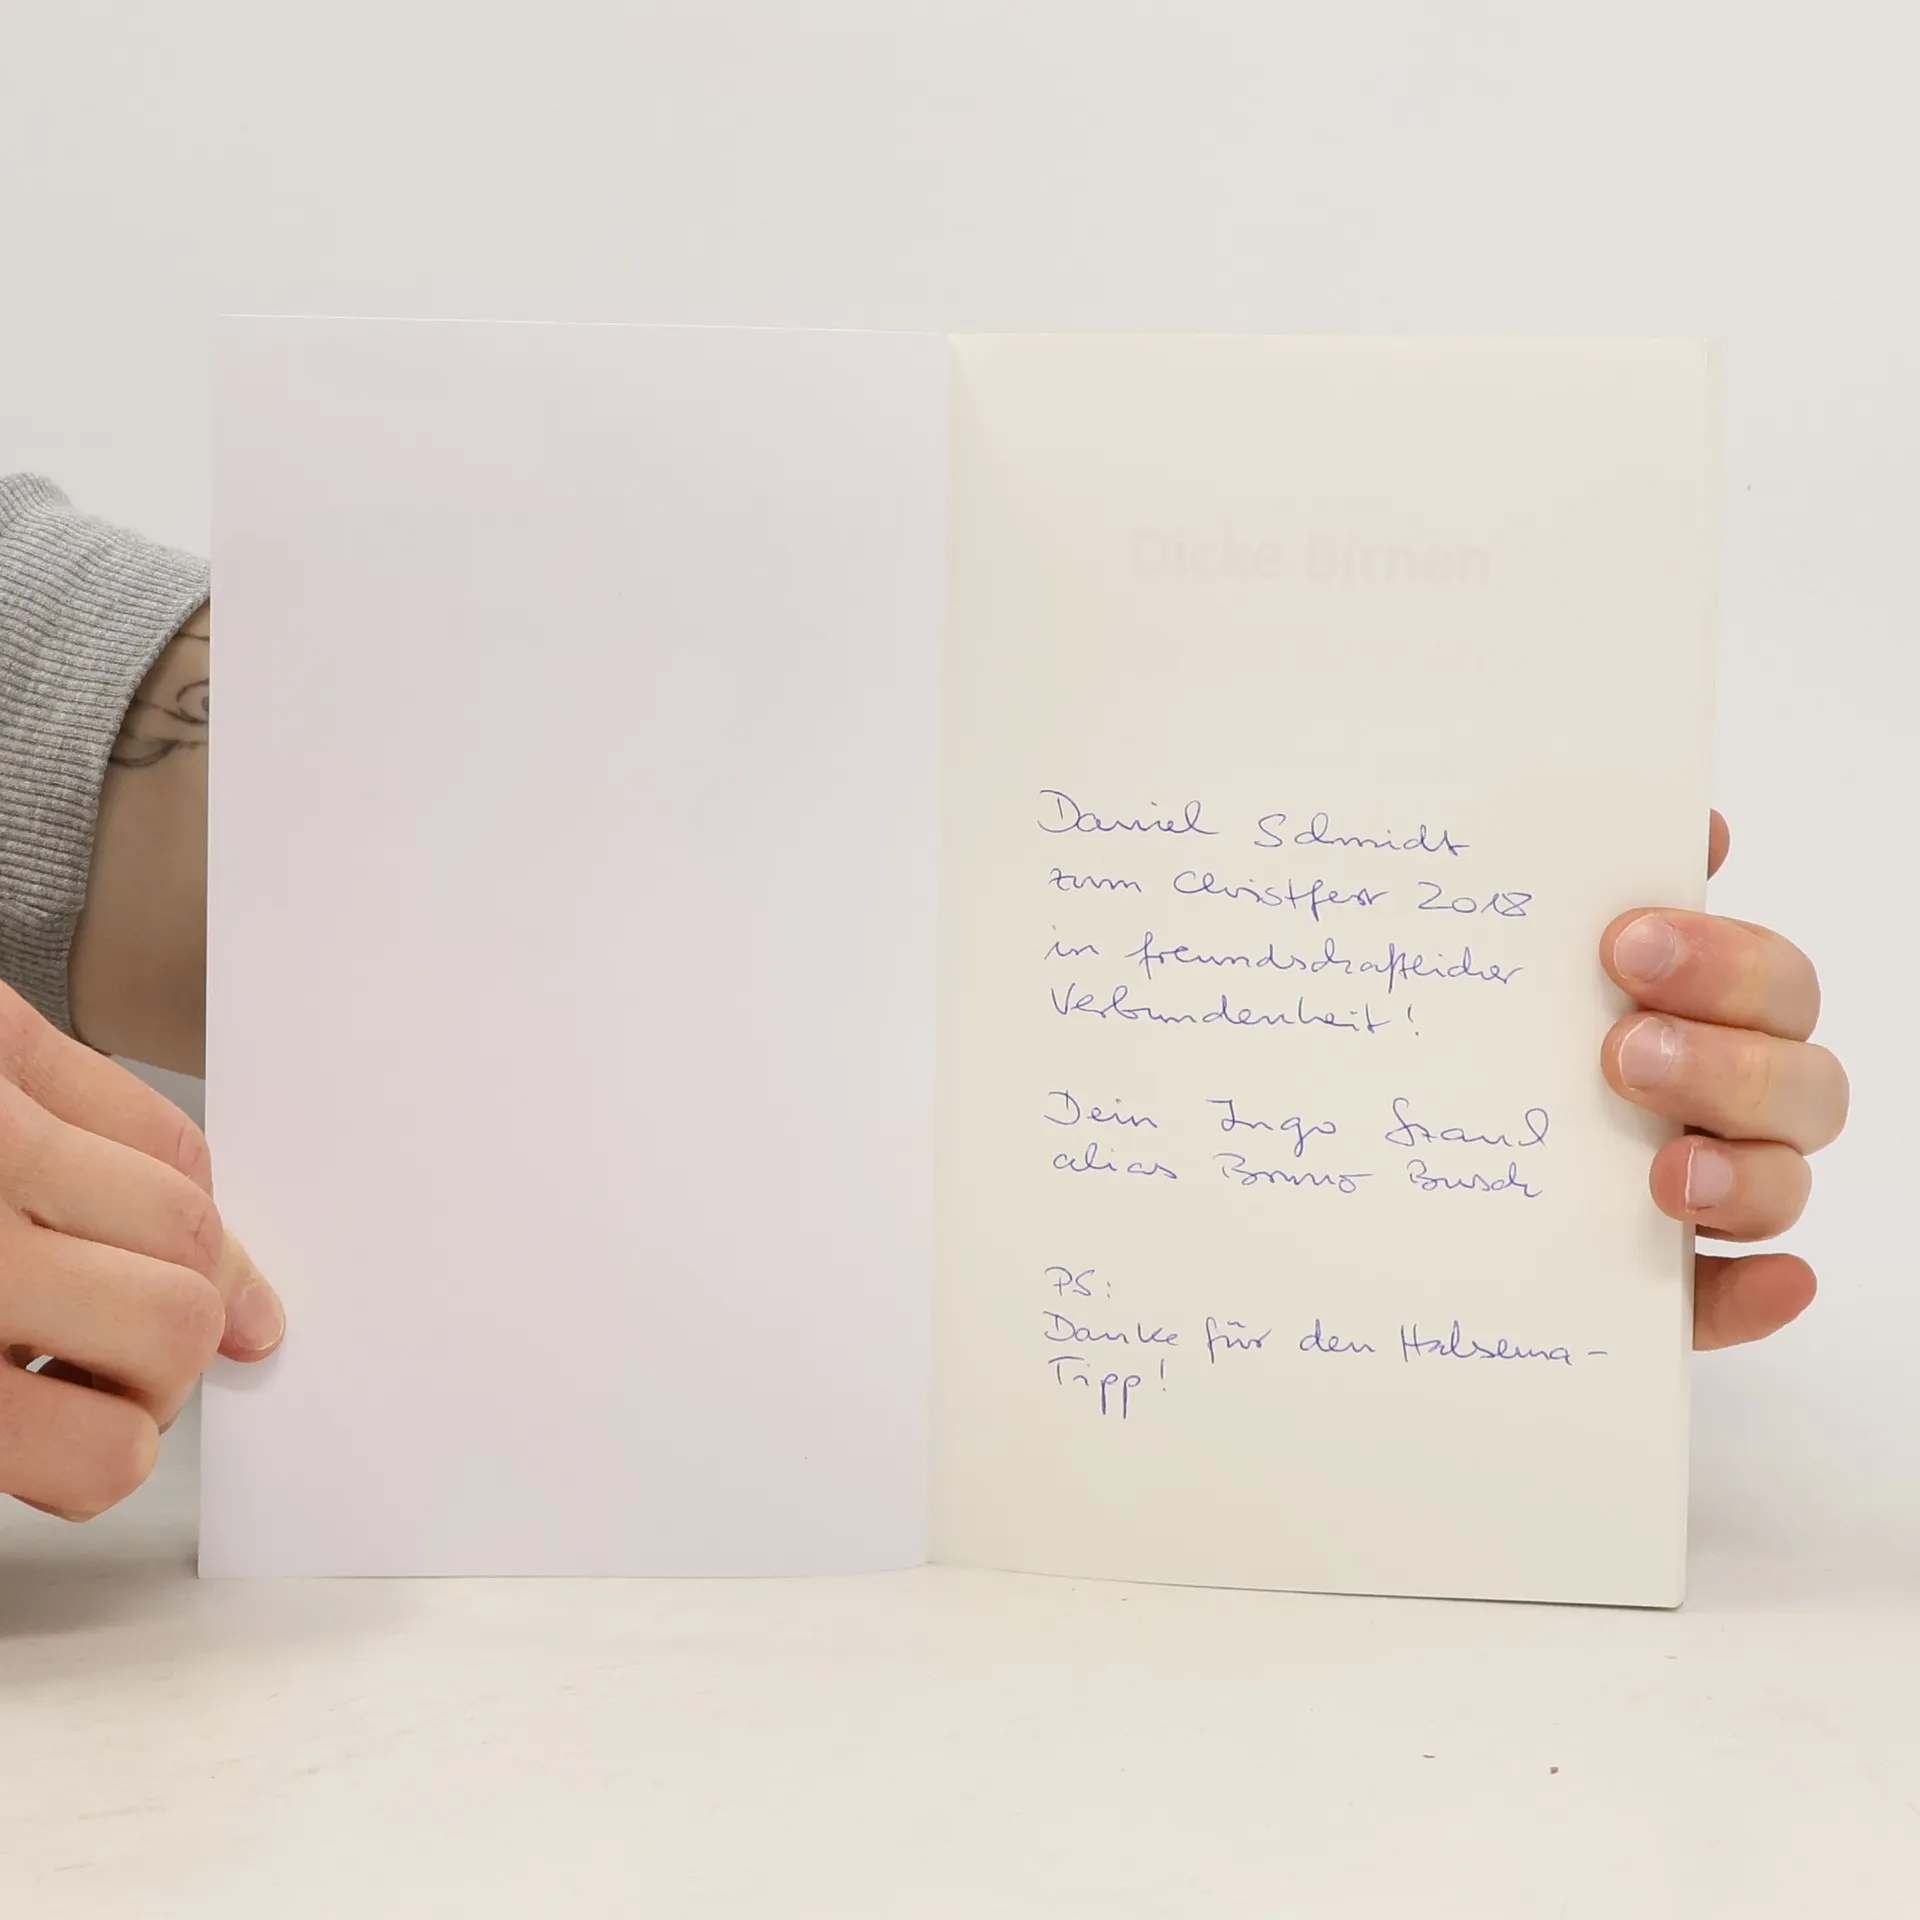 Dicke Birnen
Daniel Schmidt
zum Christfest 2018
in freundschaftlicher
Verbundenheit!
Dein Ingo
alias Bruno Busch
PS:
Danke für den Halsema-
Tipp!